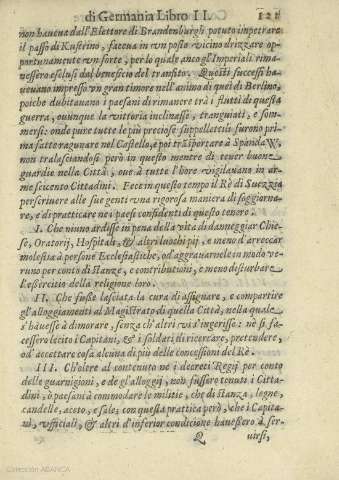 di Germania Libro II. 121
non haueua dall'Elettore di Brandenburgh potuto impetrare
il passo di Kustrino, faceua in vn posto vicino drizzare op-
portunamente vn forte, per lo quale anco gl'Imperiali rima-
nessero esclusi dal beneficio del transito. Questi successi ha-
ueuano impresso vn gran timore nell'animo di quei di Berlino,
poiche dubitauano i paesani di rimanere trà i flutti di questa
guerra, ouunque la vittoria inclinasse, tranguiati, e som-
mersi: onde pure tutte le più preciose suppellettili furono pri-
ma fatte ragunare nel Castello, e poi trasportare à Spandaw,
non tralasciandosi però in questo mentre di tener buone
guardie nella Città, oue à tutte l'hore vigilauano in ar-
me seicento Cittadini. Fece in questo tempo il Rè di Suezzia
perscriuere alle sue genti vna rigorosa maniera di soggiorna-
re, e di pratticare ne i paesi confidenti di questo tenore.
I. Che niuno ardisse in pena della vita di danneggiar Chie-
se, Oratorij, Hospitali, & altri luochi pij, e meno d'arreccar
molestia à persone Ecclesiastiche, od aggrauarnele in modo ve-
runo per conto di stanze, e contributioni, e meno disturbare
l'essercitio della religione loro.
II. Che fusse lasciata la cura di assignare, e compartire
gl'alloggiamenti al Magistrato di quella Città, nella quale
s'hauesse à dimorare, senza ch'altri vi s'ingerisse: nè si fa-
cessero lecito i Capitani, & i soldati di ricercare, pretendere,
od'accettare cosa alcuna di più delle concessioni del Rè.
III. Ch'oltre al contenuto ne i decreti Regij per conto
delle guarnigioni, e de gl'alloggij, non fussero tenuti i Citta-
dini, ò paesani à commodare le militie, che di stanza, legne,
candelle, aceto, e sale; con questa prattica però, che i Capita-
ni, vfficiali, & altri d'inferior condicione hauessero à ser-
Q uirsi,
Colección ABANCA